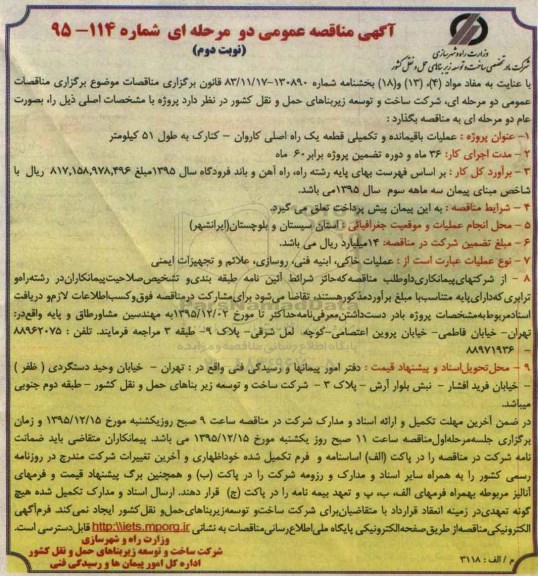 آگهی مناقصه عمومی دو مرحله ای شماره ۱۱۴- ۹۵
(نوبت دوم)
وزارت راه و شهرسازی
شرکت مادر تخصصی ساخت و توسعه زیربناهای حمل و نقل کشور
با عنایت به مفاد مواد (۴)، (۱۳) و(۱۸) بخشنامه شماره ۱۳۰۸۹۰-۸۳/۱۱/۱۷ قانون برگزاری مناقصات موضوع برگزاری مناقصات
عمومی دو مرحله ای، شرکت ساخت و توسعه زیربناهای حمل و نقل کشور در نظر دارد پروژه با مشخصات اصلی ذیل را، بصورت
عام دو مرحله ای به مناقصه بگذارد :
۱- عنوان پروژه : عملیات باقیمانده و تکمیلی قطعه یک راه اصلی کاروان – کنارک به طول ۵۱ کیلومتر
۲- مدت اجرای کار: ۳۶ ماه و دوره تضمین پروژه برابر ۶۰ ماه
۳- برآورد کل کار : بر اساس فهرست بهای پایه رشته راه، راه آهن و باند فرودگاه سال ۱۳۹۵مبلغ ۸۱۷,۱۵۸,۹۷۸,۴۹۶ ریال با
شاخص مبنای پیمان سه ماهه سوم سال ۱۳۹۵می باشد.
۴ – شرایط مناقصه : به این پیمان پیش پرداخت تعلق می گیرد.
۵ – محل انجام عملیات و موقعیت جغرافیائی : استان سیستان و بلوچستان(ایرانشهر)
۶ – مبلغ تضمین شرکت در مناقصه: ۱۴میلیارد ریال می باشد.
۷ – نوع عملیات عبارت است از : عملیات خاکی، ابنیه فنی، روسازی، علائم و تجهیزات ایمنی
۸ – از شرکتهای‌پیمانکاری‌داوطلب مناقصه‌که‌حائز شرائط آئین نامه طبقه بندی‌و تشخیص‌صلاحیت‌پیمانکاران‌در رشته‌راه‌و
ترابری‌که‌دارای‌پایه متناسب‌با مبلغ برآورد‌مذکورهستند، تقاضا می‌شود برای‌مشارکت درمناقصه فوق‌وکسب‌اطلاعات لازم‌و دریافت
اسناد‌مربوط‌به‌مشخصات پروژه بادر دست‌داشتن‌معرفی‌نامه‌حداکثر تا مورخ ۱۳۹۵/۱۲/۰۲به مهندسین مشاورطاق و پایه واقع‌در:
تهران– خیابان فاطمی– خیابان پروین اعتصامی–کوچه لعل شرقی– پلاک ۹– طبقه ۳ مراجعه فرمایند. تلفن : ۸۸۹۶۲۰۷۵
– ۸۸۹۷۱۹۳۶
۹ – محل‌تحویل‌اسناد و پیشنهاد قیمت : دفتر امور پیمانها و رسیدگی فنی واقع در : تهران – خیابان وحید دستگردی ( ظفر )
– خیابان فرید افشار – نبش بلوار آرش – پلاک ۳ – شرکت ساخت و توسعه زیر بنا های حمل و نقل کشور – طبقه دوم جنوبی
میباشد.
در ضمن آخرین مهلت تکمیل و ارائه اسناد و مدارک شرکت در مناقصه ساعت ۹ صبح روزیکشنبه مورخ ۱۳۹۵/۱۲/۱۵ و زمان
برگزاری جلسه‌مرحله‌اول‌مناقصه ساعت ۱۱ صبح روز یکشنبه مورخ ۱۳۹۵/۱۲/۱۵ می باشد. پیمانکاران متقاضی باید ضمانت
نامه شرکت در مناقصه را در پاکت (الف) اساسنامه و فرم تکمیل شده خوداظهاری و آخرین تغییرات شرکت مندرج در روزنامه
رسمی کشور را به همراه سایر اسناد و مدارک و رزومه شرکت را در پاکت (ب) و همچنین برگ پیشنهاد قیمت و فرمهای
آنالیز مربوطه بهمراه فرمهای الف، ب، پ و تعهد بیمه نامه را در پاکت (ج) قرار دهند. ارسال اسناد و مدارک تکمیل شده هیچ
گونه تعهدی‌در زمینه انعقاد قرارداد با متقاضیان‌برای شرکت ساخت‌و توسعه‌زیربناهای‌حمل‌و نقل کشور ایجاد نمی‌کند. فرم‌آگهی
الکترونیکی‌مناقصه‌از طریق‌صفحه‌الکترونیکی پایگاه ملی‌اطلاع‌رسانی‌مناقصات به نشانی http://iets.mporg.ir قابل‌دسترسی است.
وزارت راه و شهرسازی
شرکت ساخت و توسعه زیربناهای حمل و نقل کشور
اداره کل امور پیمان ها و رسیدگی فنی
م / الف : ۳۱۱۸
پایگاه اطلاع رسانی مناقصه و مزایده